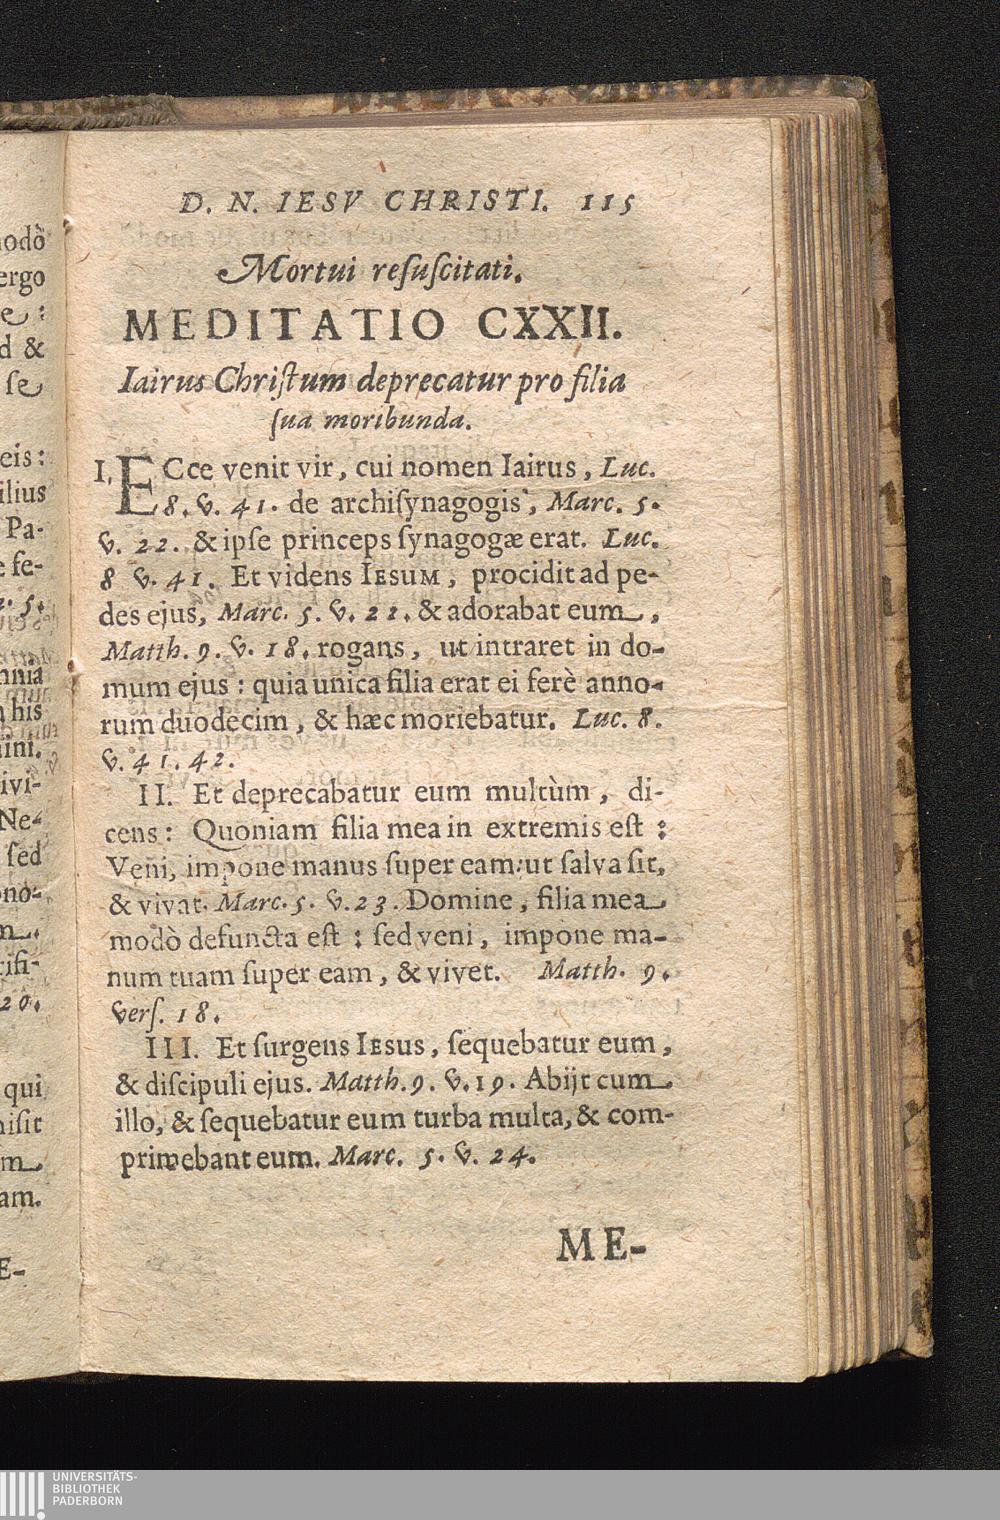 D. N. IESV CHRISTI. 115
Mortui reſuſcitati.
MEDITATIO CXXII.
Iairus Chriſtum deprecatur pro filia
ſua moribunda.
I. ECce venit vir, cui nomen Iairus, Luc.
8. v. 41. de archiſynagogis, Marc. 5.
v. 22. & ipſe princeps ſynagogæ erat. Luc.
8 v. 41. Et videns IESUM, procidit ad pe-
des ejus, Marc. 5. v. 22. & adorabat eum,
Matth. 9. v. 18. rogans, ut intraret in do-
mum ejus: quia unica filia erat ei ferè anno-
rum duodecim, & hæc moriebatur. Luc. 8.
v. 41. 42.
II. Et deprecabatur eum multùm, di-
cens: Quoniam filia mea in extremis eſt:
Veni, impone manus ſuper eam: ut ſalva ſit,
& vivat. Marc. 5. v. 23. Domine, filia mea
modò defuncta eſt: ſed veni, impone ma-
num tuam ſuper eam, & vivet. Matth. 9.
verſ. 18.
III. Et ſurgens IESUS, ſequebatur eum,
& diſcipuli ejus. Matth. 9. v. 19. Abijt cum
illo, & ſequebatur eum turba multa, & com-
primebant eum. Marc. 5. v. 24.
ME-
odò
ergo
e:
d &
ſe
eis:
ilius
Pa-
e fe-
. 5.
nnia
his
ini.
ivi-
Ne-
ſed
no-
m.
rifi-
20.
qui
iſit
m.
am.
E-
UNIVERSITÄTS-
BIBLIOTHEK
PADERBORN